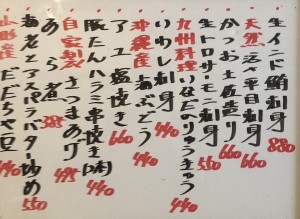 生インド鮪刺身 880
天然活〆平目刺身 660
かつお土佐造り 660
生トロサーモン刺身 550
九州料理いなだのりゅうきゅう 440
いわし刺身 440
沖縄産海ぶどう 440
アユ塩焼き 660
豚たんハラミ串焼き(2本) 440
自家製さつまあげ 495
あら煮 385
海老とアスパラバター炒め 550
山形産だだちゃ豆 440